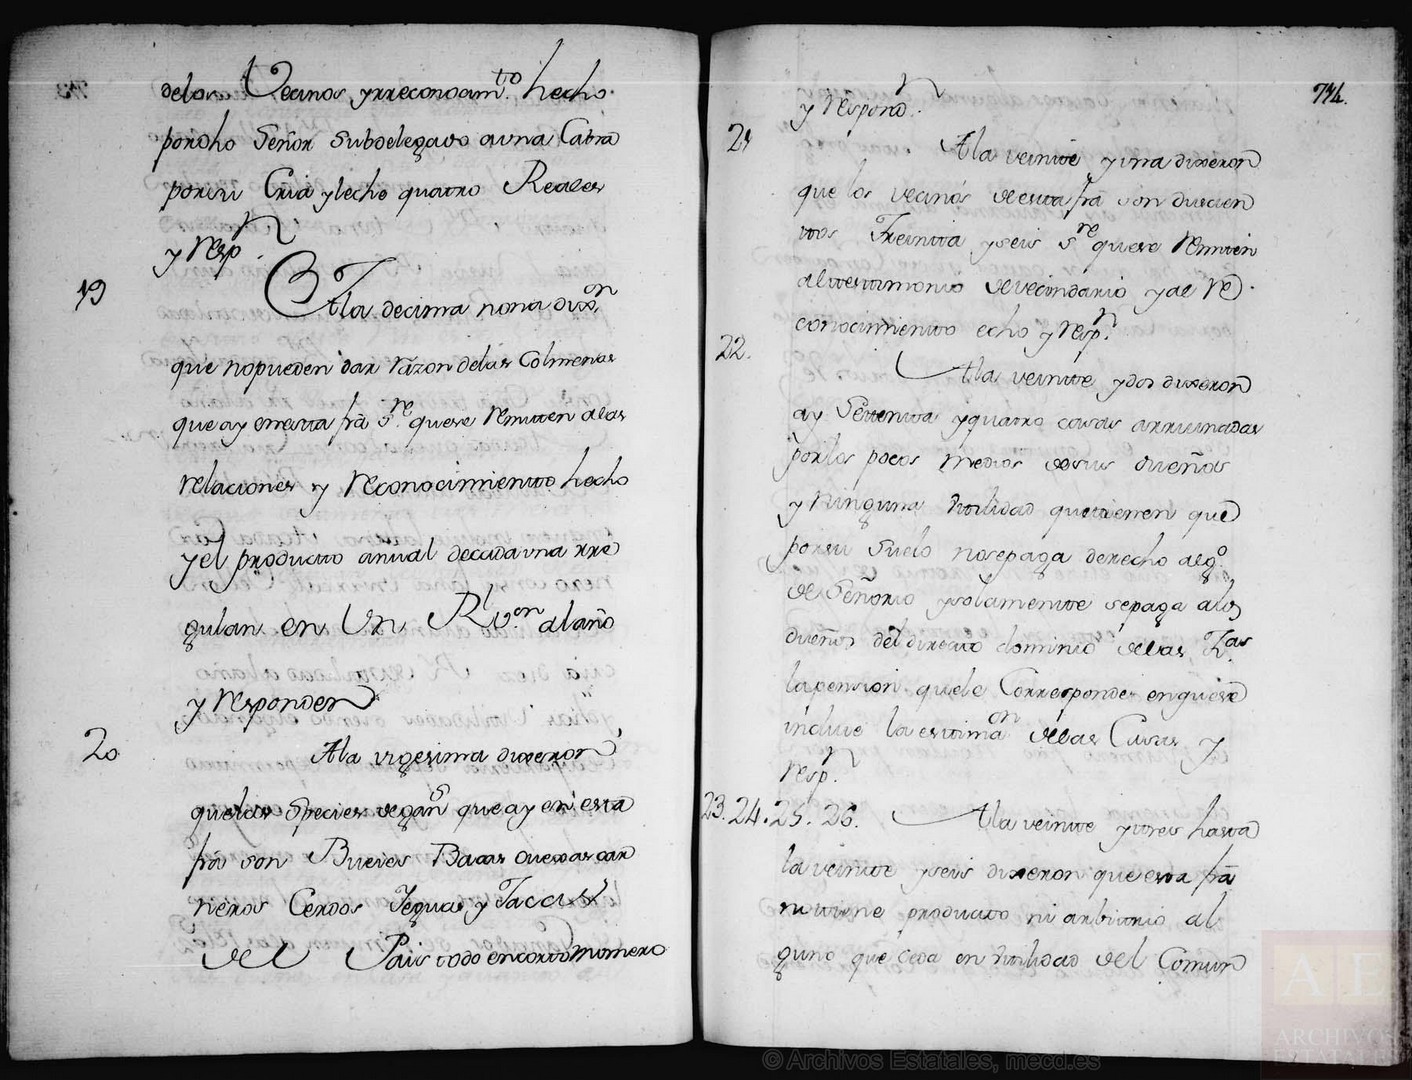 delos Vecinos yrreconocim.to hecho
pordho Señor Subdelegado auna Cabra
porsu Cria yleche quatro Reales
y resp.n
19
Ala decima nona dix.on
que nopueden dar razon delas Colmenas
que ay enesta frã s.re quese remiten alas
relaciones y reconocimiento hecho
y el producto anual decadauna rre
gulan en Un Rl v.on alaño
y responden
20
Ala vigesima dixeron
quelas Species degan.s que ay en esta
frã son Bueies Bacas ouexas car
neros Cerdos Yeguas y Jacas
del Pais todo encorto numero
774.
y respond.n
21
Ala veinte yuna dixeron
que los vecinos deesta frã son ducien
ttos Treintta yseis s.re quese remiten
altestimonio devecindario yal re
conocimiento echo y resp.n
22.
Ala veinte ydos dixeron
ay Settenta yquatro casas arruinadas
porlos pocos medios desus dueños
y ninguna utilidad quetienen que
porsu suelo nosepaga derecho alg.o
de Señorio ysolamente sepaga alos
dueños del directo dominio delas tr.as
lapension quele Corresponde enquese
incluie la estima.on delas Casas y
resp.n
23.24.25.26.
Ala veinte ytres hasta
la veinte yseis dixeron que esta frã
no tiene producto ni arbitrio al
guno que ceda en utilidad del Comun
A E
ARCHIVOS
ESTATALES
© Archivos Estatales, mecd.es